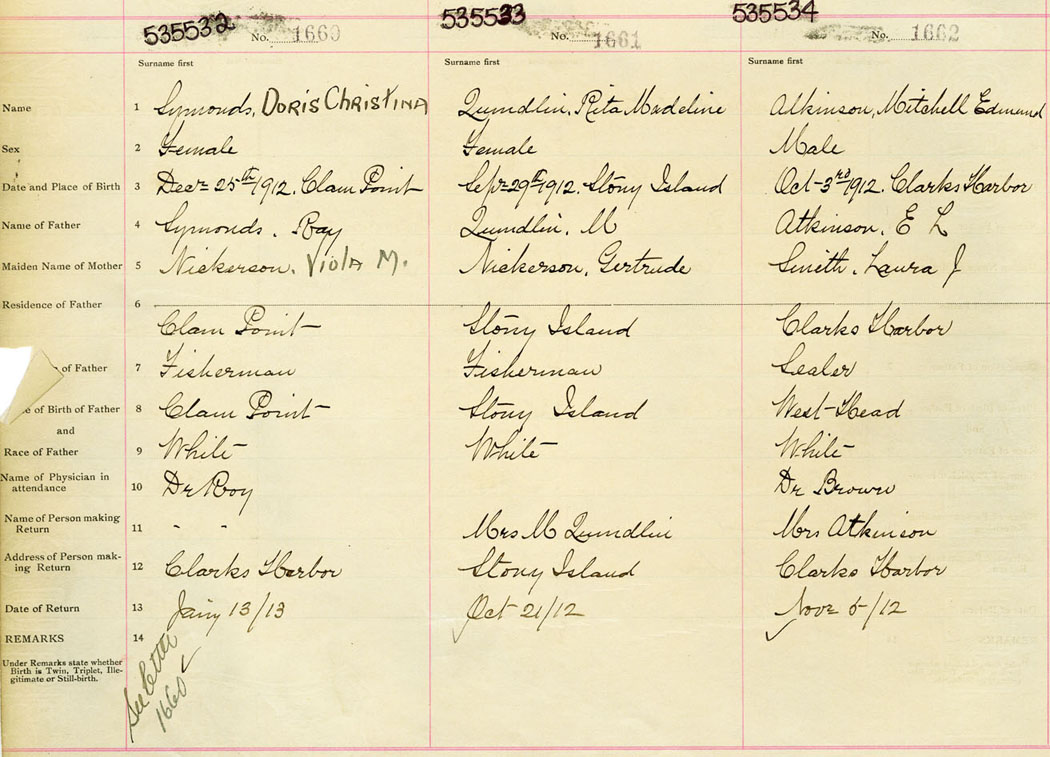 535532 No. 1660 535533 No. 1661 535534 No. 1662
Surname first Surname first Surname first
Name 1 Symonds, Doris Christina Quindlin, Rita Madeline Atkinson, Mitchell Edmund
Sex 2 Female Female Male
Date and Place of Birth 3 Decr 25th 1912, Clam Point Sepr 29th 1912, Stony Island Oct 3rd 1912, Clarks Harbor
Name of Father 4 Symonds, Ray Quindlin, M Atkinson, E L
Maiden Name of Mother 5 Nickerson, Viola M. Nickerson, Gertrude Smith, Laura J
Residence of Father 6
Clam Point Stony Island Clarks Harbor
of Father 7 Fisherman Fisherman Sealer
e of Birth of Father 8 Clam Point Stony Island West Head
and
Race of Father 9 White White White
Name of Physician in
attendance 10 Dr Roy Dr Brown
Name of Person making
Return 11 " " Mrs M Quindlin Mrs Atkinson
Address of Person mak-
ing Return 12 Clarks Harbor Stony Island Clarks Harbor
Date of Return 13 Jany 13/13 Oct 21/12 Novr 5/12
REMARKS 14
Under Remarks state whether
Birth is Twin, Triplet, Ille-
gitimate or Still-birth.
See letter
1660